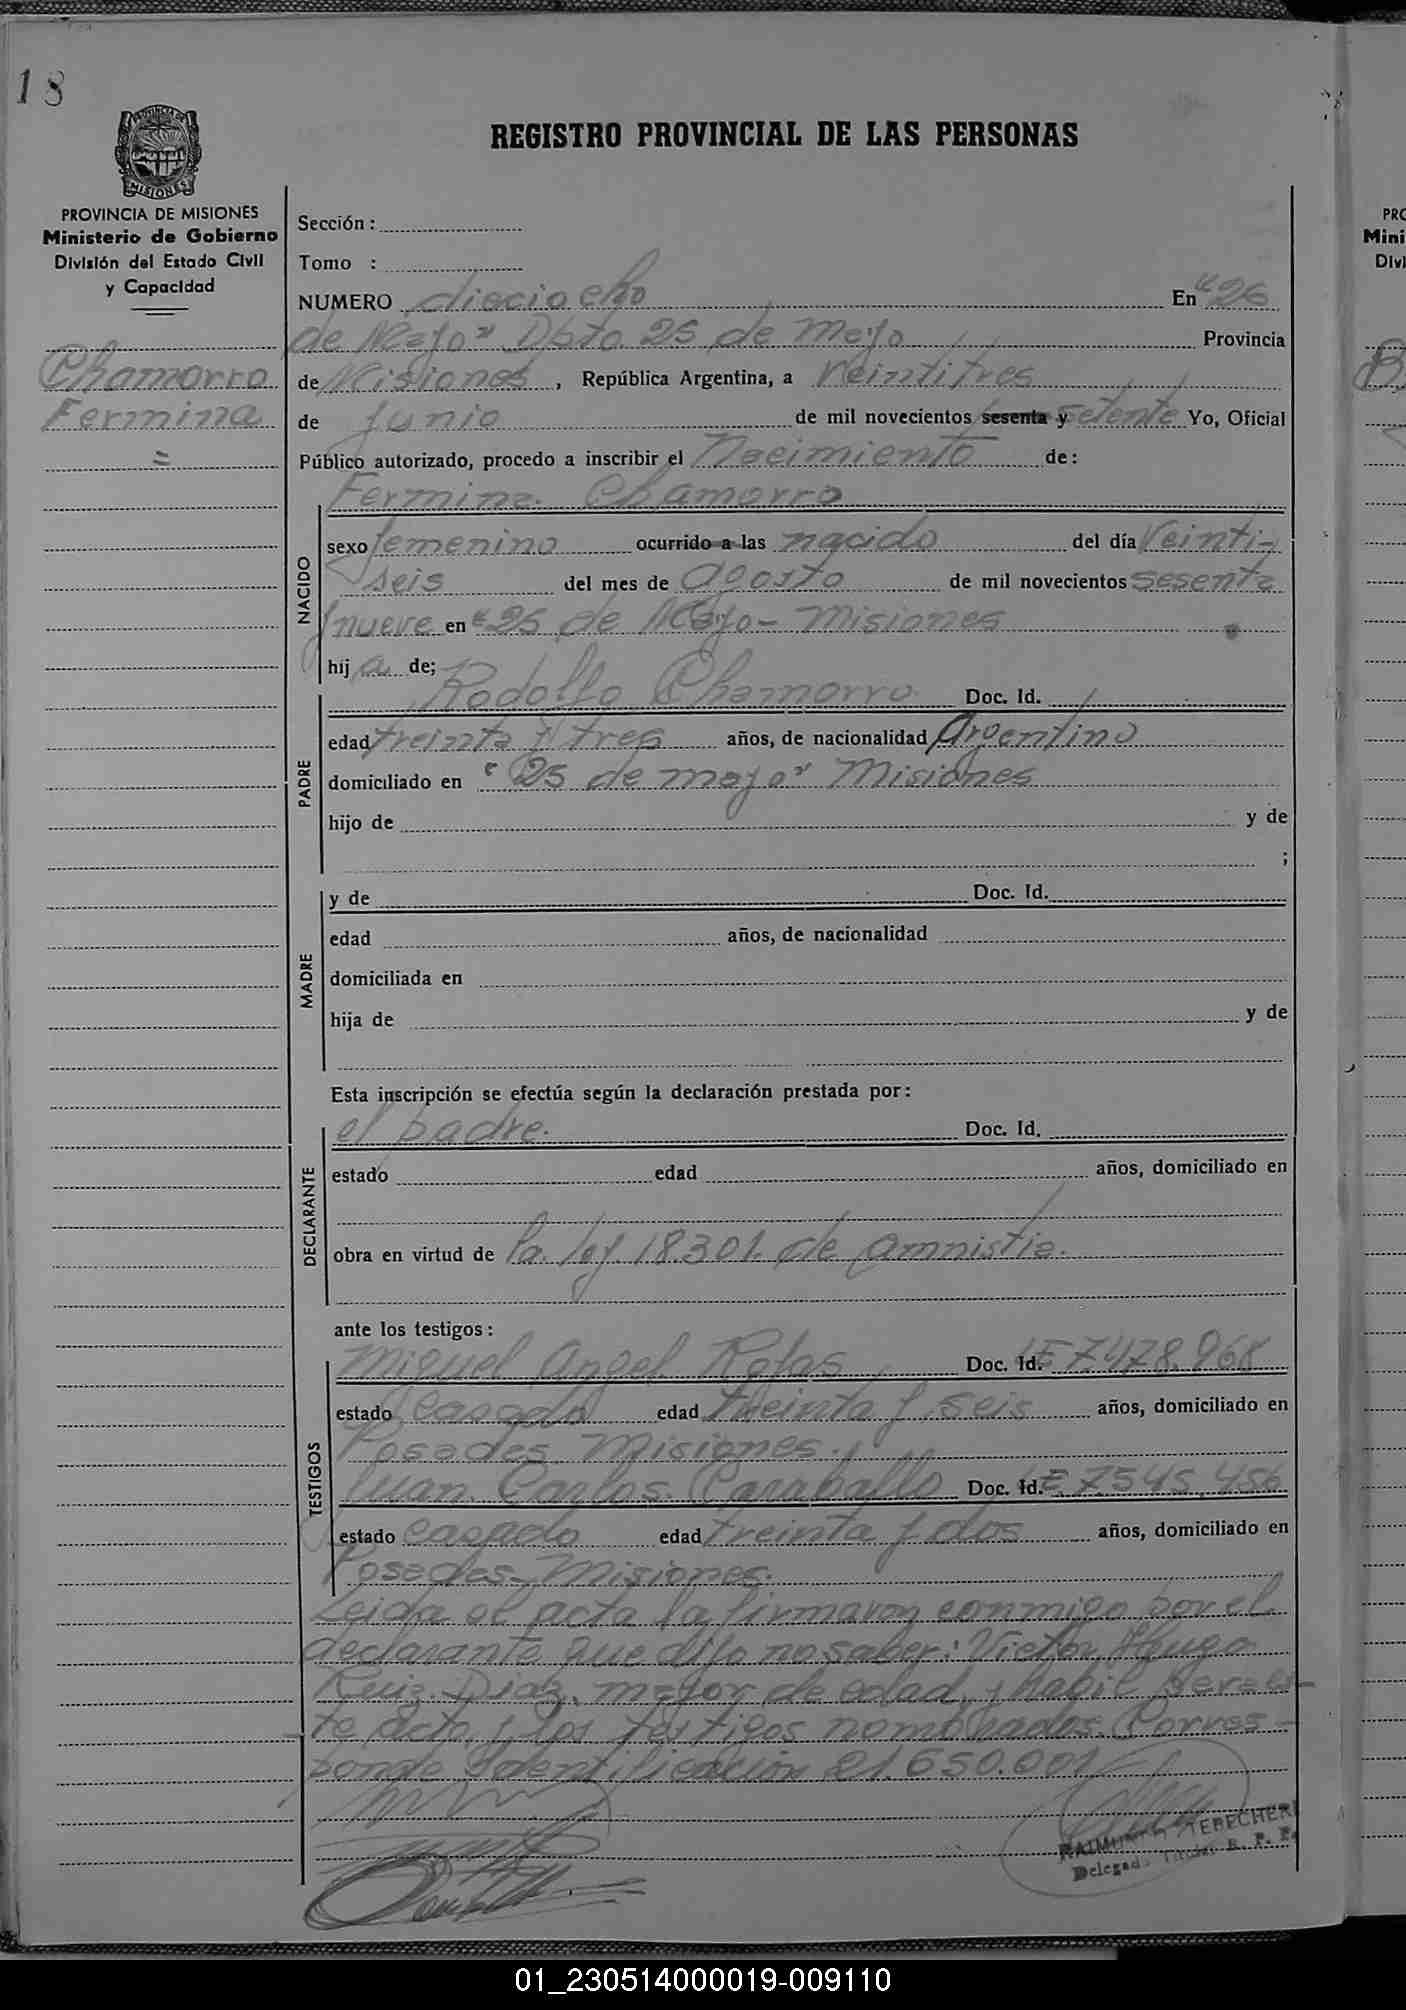 18
PROVINCIA DE MISIONES
REGISTRO PROVINCIAL DE LAS PERSONAS
PROVINCIA DE MISIONES
Ministerio de Gobierno
División del Estado Civil
y Capacidad
Chamorro
Fermina
=
Sección :
Tomo :
NUMERO dieciocho En "25
de Mayo" Dpto. 25 de Mayo Provincia
de Misiones , República Argentina, a veintitres
de Junio de mil novecientos sesenta y setenta Yo, Oficial
Público autorizado, procedo a inscribir el Nacimiento de :
Fermina Chamorro
NACIDO
sexo femenino ocurrido a las nacido del día veinti-
seis del mes de agosto de mil novecientos sesenta
y nueve en "25 de Mayo - Misiones
hij a de;
PADRE
Rodolfo Chamorro Doc. Id.
edad treinta y tres años, de nacionalidad Argentino
domiciliado en "25 de mayo" Misiones
hijo de y de
;
MADRE
y de Doc. Id.
edad años, de nacionalidad
domiciliada en
hija de y de
Esta inscripción se efectúa según la declaración prestada por :
DECLARANTE
el padre. Doc. Id.
estado edad años, domiciliado en
obra en virtud de la ley 18.301. de amnistia.
ante los testigos :
TESTIGOS
Miguel Angel Rojas Doc. Id. LE 7.478.968
estado casado edad treinta y seis años, domiciliado en
Posadas Misiones.
Juan Carlos Caraballo Doc. Id. LE 7545.456
estado casado edad treinta y dos años, domiciliado en
Posadas - Misiones.
Leida el acta la firmaron conmigo por el
declarante que dijo no saber: Victor Hugo
Ruiz Diaz, mayor de edad y habil para es-
te acto y los testigos nombrados. Corres-
ponde Identificación 21.650.001
RAIMUNDO TEBECHERI
Delegado Titular R. P. P.
PRO
Mini
Divi
01_230514000019-009110